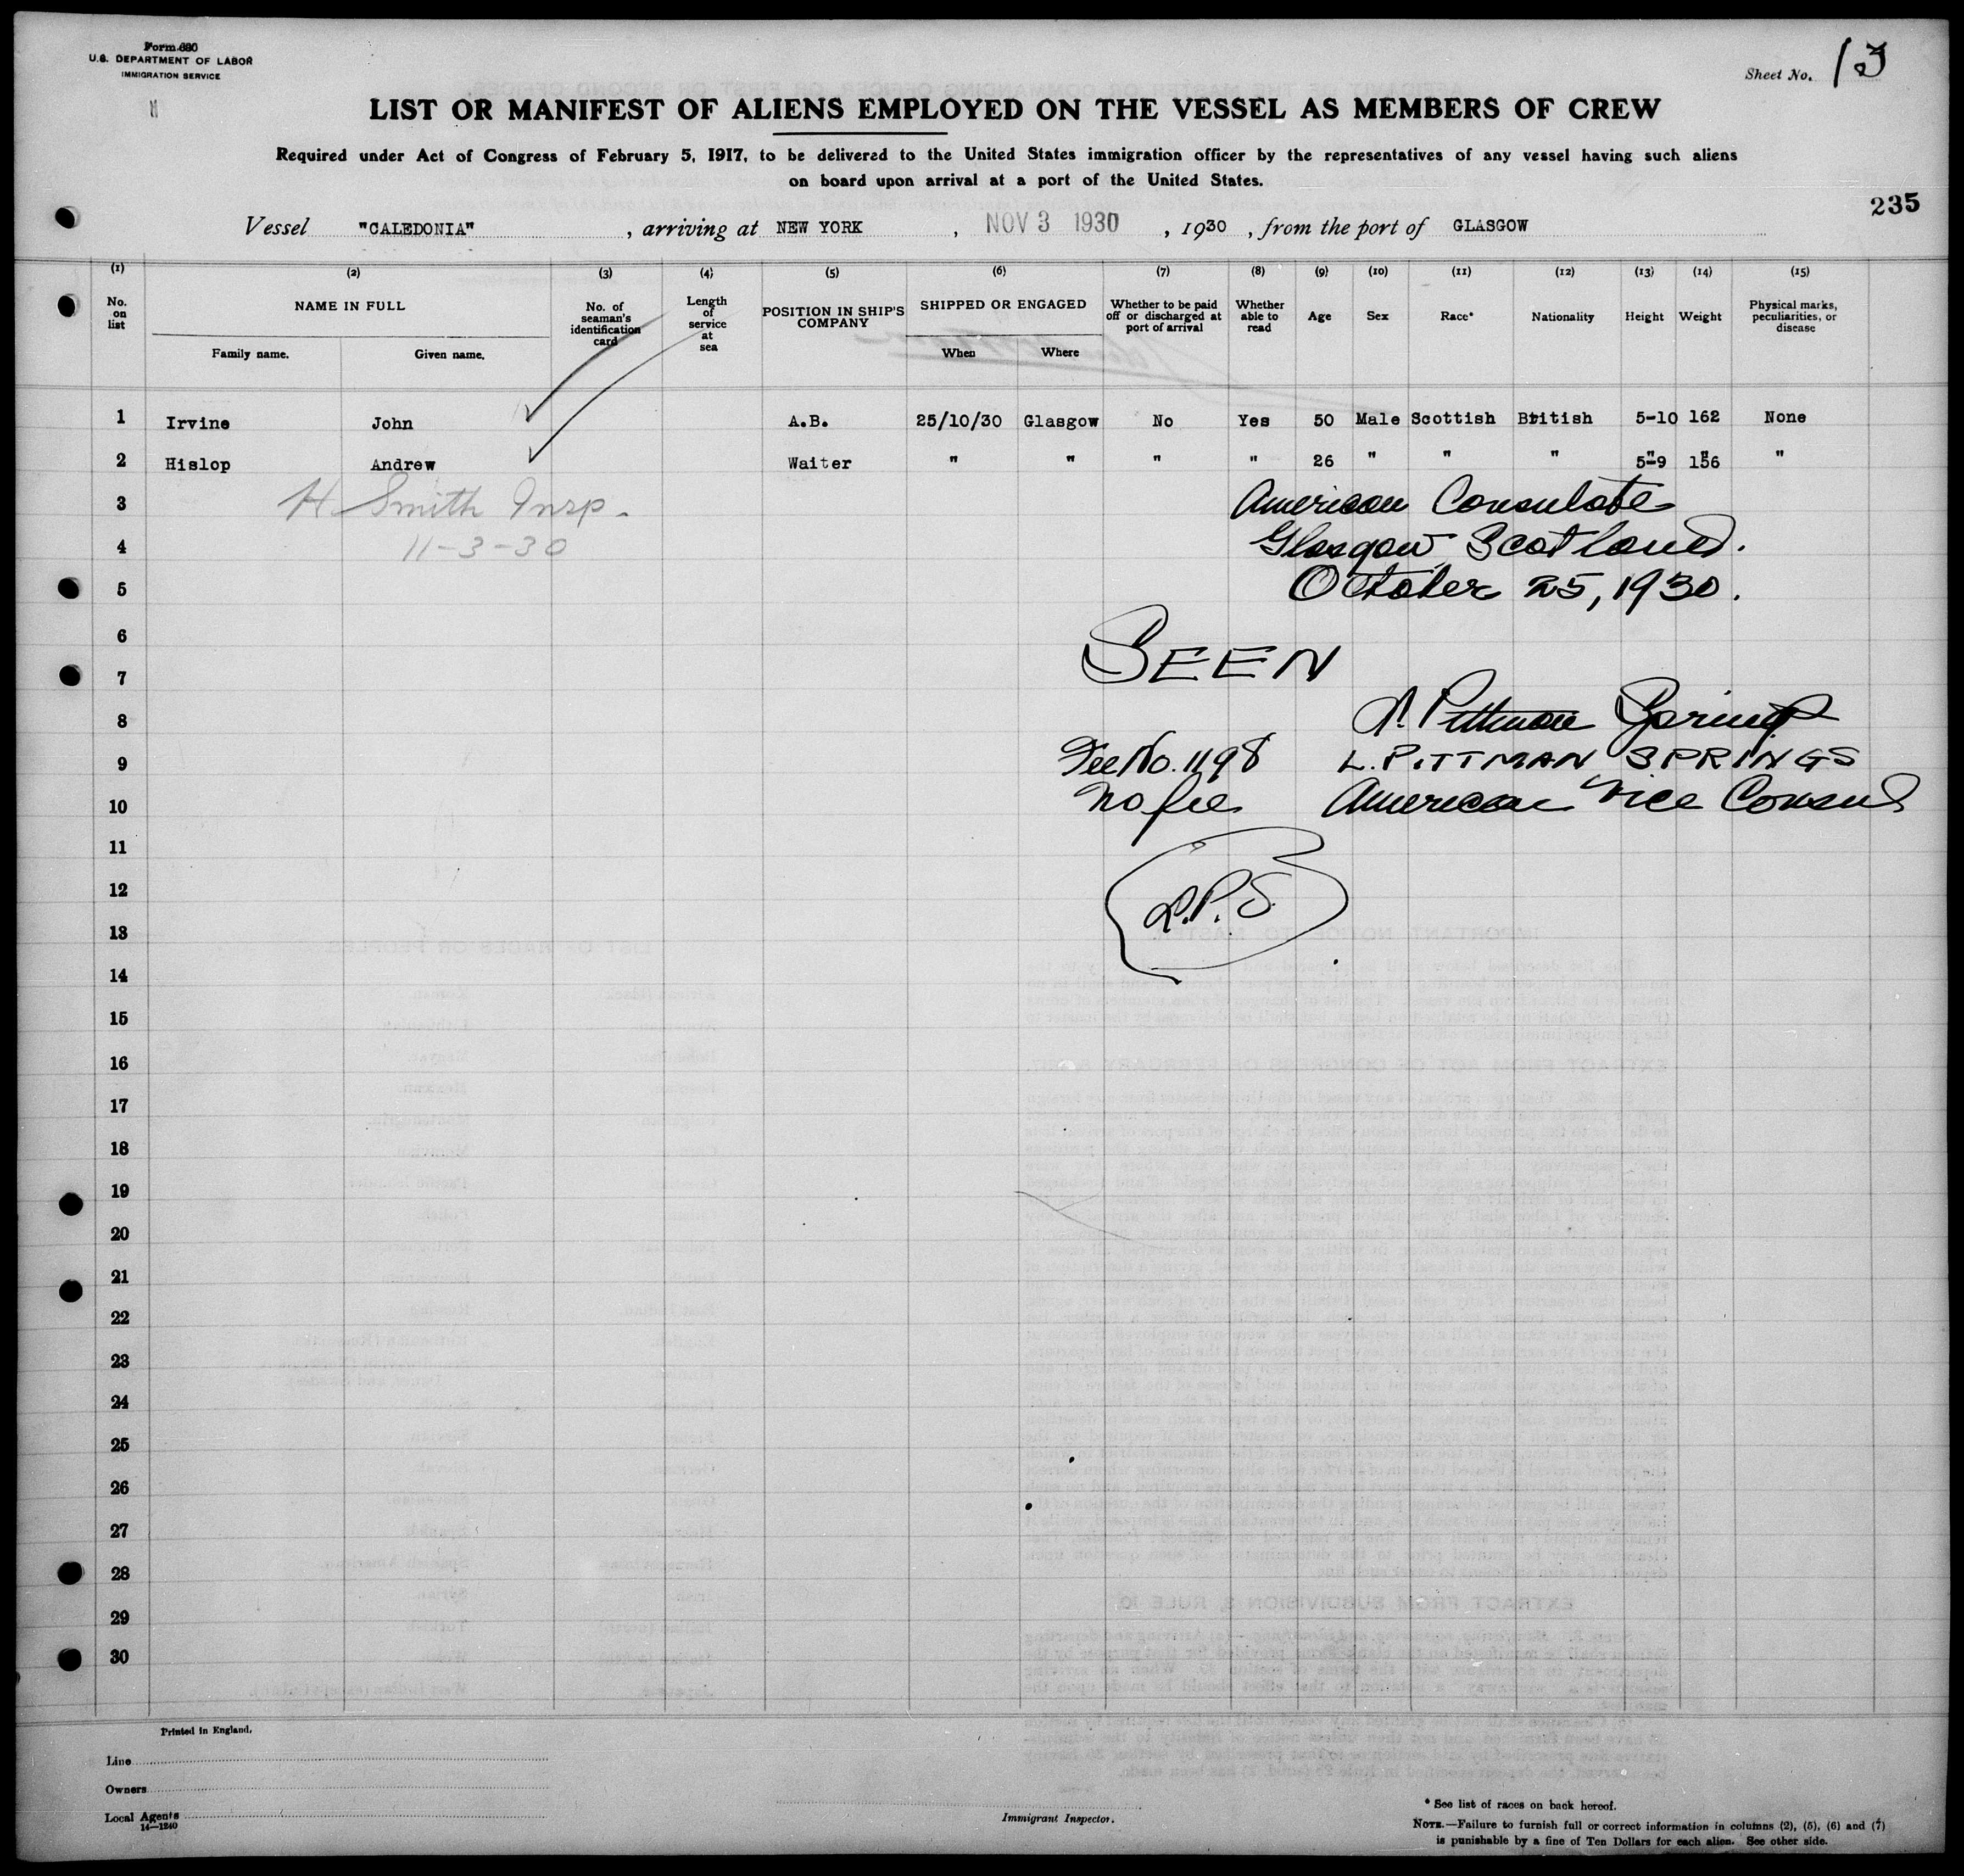 Form 680
U.S. DEPARTMENT OF LABOR
IMMIGRATION SERVICE
Sheet No. 13
LIST OR MANIFEST OF ALIENS EMPLOYED ON THE VESSEL AS MEMBERS OF CREW
Required under Act of Congress of February 5, 1917, to be delivered to the United States immigration officer by the representatives of any vessel having such aliens
on board upon arrival at a port of the United States.
235
Vessel "CALEDONIA", arriving at NEW YORK, NOV 3 1930, 1930, from the port of GLASGOW
(1) (2) (3) (4) (5) (6) (7) (8) (9) (10) (11) (12) (13) (14) (15)
No. on list
NAME IN FULL
Family name. Given name.
No. of seaman's identification card
Length of service at sea
POSITION IN SHIP'S COMPANY
SHIPPED OR ENGAGED
When Where
Whether to be paid off or discharged at port of arrival
Whether able to read
Age
Sex
Race*
Nationality
Height
Weight
Physical marks, peculiarities, or disease
1 Irvine John A.B. 25/10/30 Glasgow No Yes 50 Male Scottish British 5-10 162 None
2 Hislop Andrew Waiter " " " " 26 " " " 5-9 156 "
3 H Smith Insp. American Consulate
4 11-3-30 Glasgow Scotland.
5 October 25, 1930.
6
7 SEEN
8 L. Pittman Springs
9 Fee No. 1198 L. PITTMAN SPRINGS
10 No fee American Vice Consul
11
12 L.P.S.
13
14
15
16
17
18
19
20
21
22
23
24
25
26
27
28
29
30
Printed in England.
Line
Owners
Local Agents
14—1240
Immigrant Inspector.
* See list of races on back hereof.
NOTE.—Failure to furnish full or correct information in columns (2), (5), (6) and (7)
is punishable by a fine of Ten Dollars for each alien. See other side.